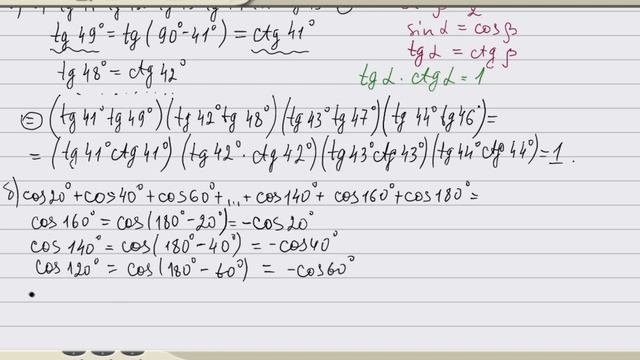 tg 49° = tg(90°-41°) = ctg 41°
sin α = cos β
tg α = ctg β
tg 48° = ctg 42°
tg α · ctg α = 1
= (tg 41° tg 49°)(tg 42° tg 48°)(tg 43° tg 47°)(tg 44° tg 46°) =
= (tg 41° ctg 41°)(tg 42° · ctg 42°)(tg 43° ctg 43°)(tg 44° ctg 44°) = 1.
б) cos 20° + cos 40° + cos 60° + ... + cos 140° + cos 160° + cos 180° =
cos 160° = cos(180° - 20°) = - cos 20°
cos 140° = cos(180° - 40°) = - cos 40°
cos 120° = cos(180° - 60°) = - cos 60°